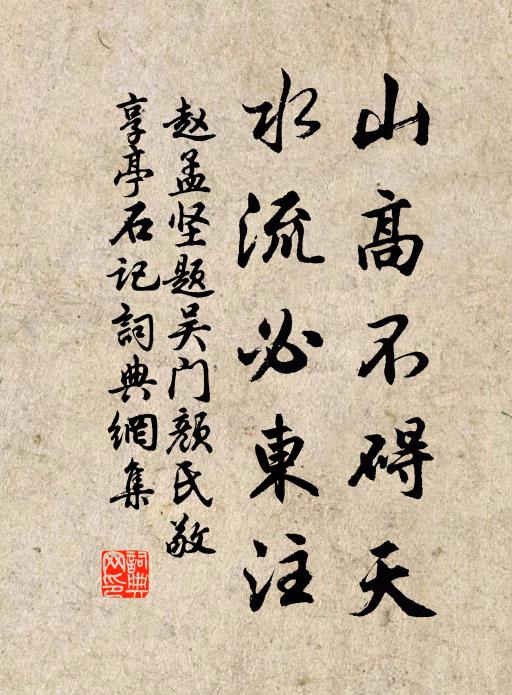 山高不碍天
水流必東注
赵孟坚题吴门颜氏敬
享亭石记詞典網集
詞典網印